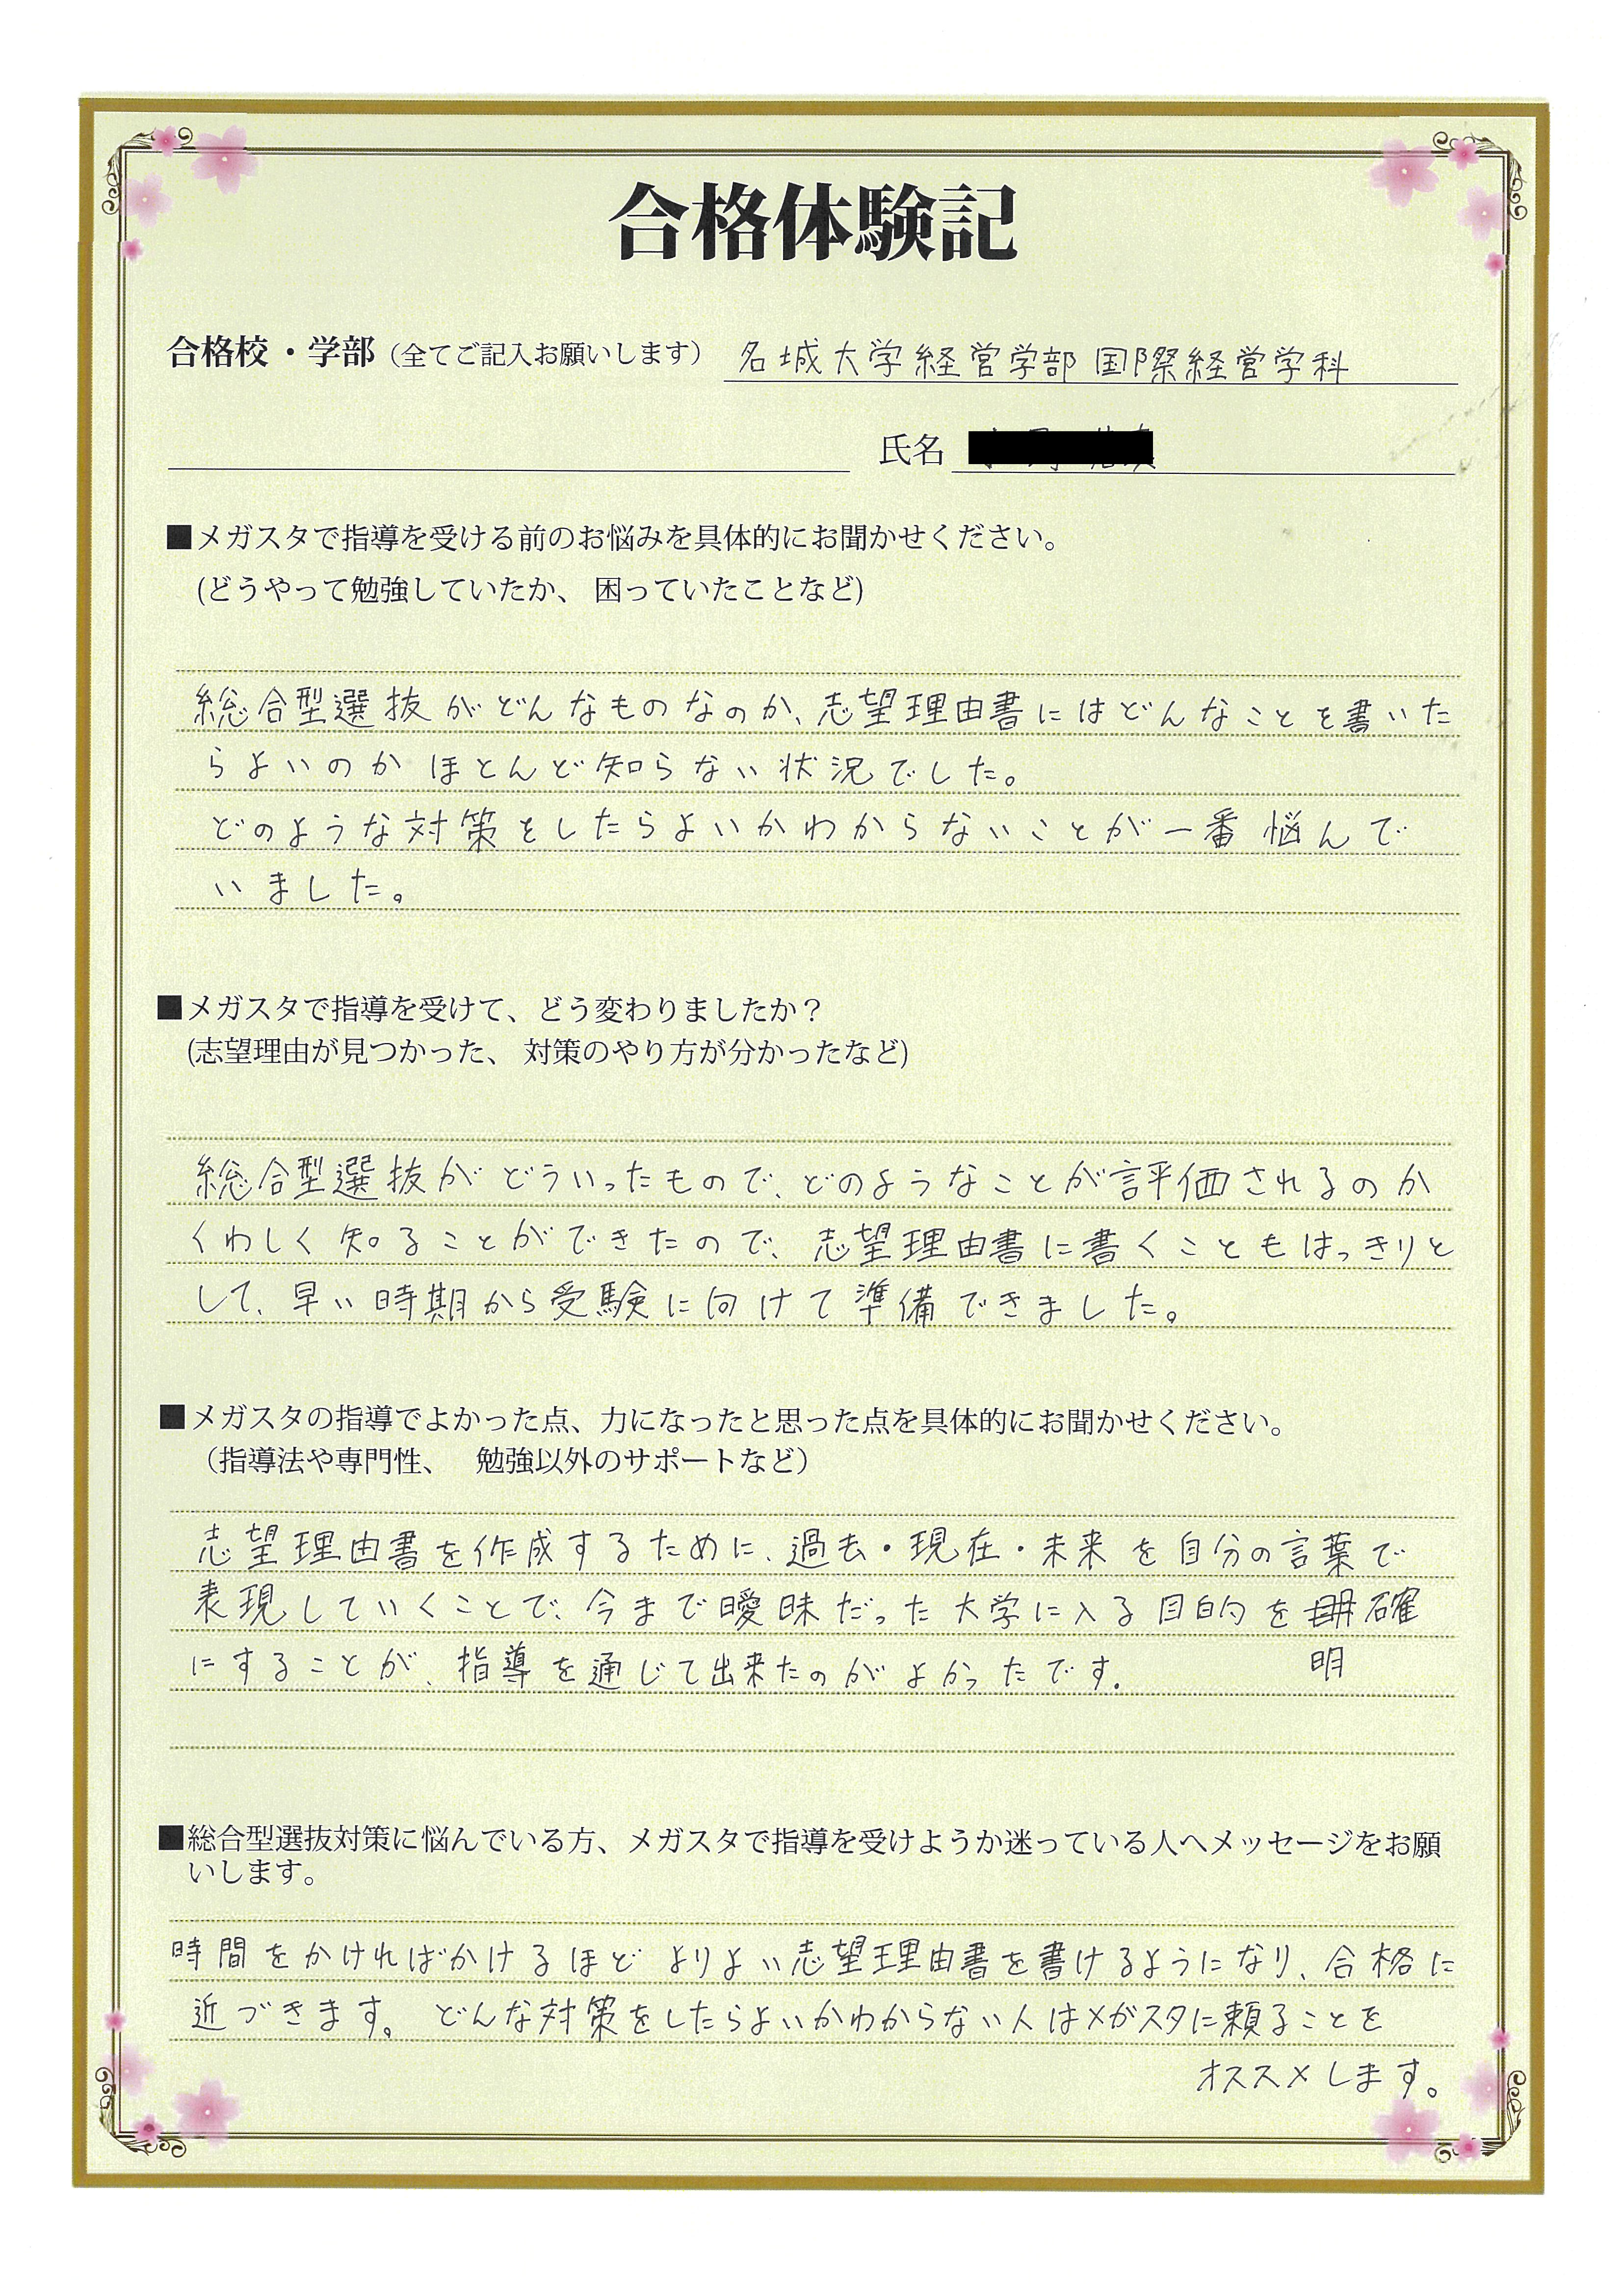 合格体験記
合格校・学部（全てご記入お願いします） 名城大学経営学部 国際経営学科
氏名
■メガスタで指導を受ける前のお悩みを具体的にお聞かせください。
(どうやって勉強していたか、 困っていたことなど)
総合型選抜がどんなものなのか、志望理由書にはどんなことを書いた
らよいのか ほとんど知らない状況でした。
どのような対策をしたらよいかわからないことが一番悩んで
いました。
■メガスタで指導を受けて、どう変わりましたか？
(志望理由が見つかった、 対策のやり方が分かったなど)
総合型選抜がどういったもので、どのようなことが評価されるのか
くわしく知ることができたので、志望理由書に書くこともはっきりと
して、早い時期から受験に向けて準備できました。
■メガスタの指導でよかった点、力になったと思った点を具体的にお聞かせください。
（指導法や専門性、 勉強以外のサポートなど）
志望理由書を作成するために、過去・現在・未来を自分の言葉で
表現していくことで、今まで曖昧だった大学に入る目的を確
にすることが、指導を通じて出来たのがよかったです。 明
■総合型選抜対策に悩んでいる方、メガスタで指導を受けようか迷っている人へメッセージをお願
いします。
時間をかければかけるほど よりよい志望理由書を書けるようになり、合格に
近づきます。 どんな対策をしたらよいかわからない人はメガスタに頼ることを
オススメします。